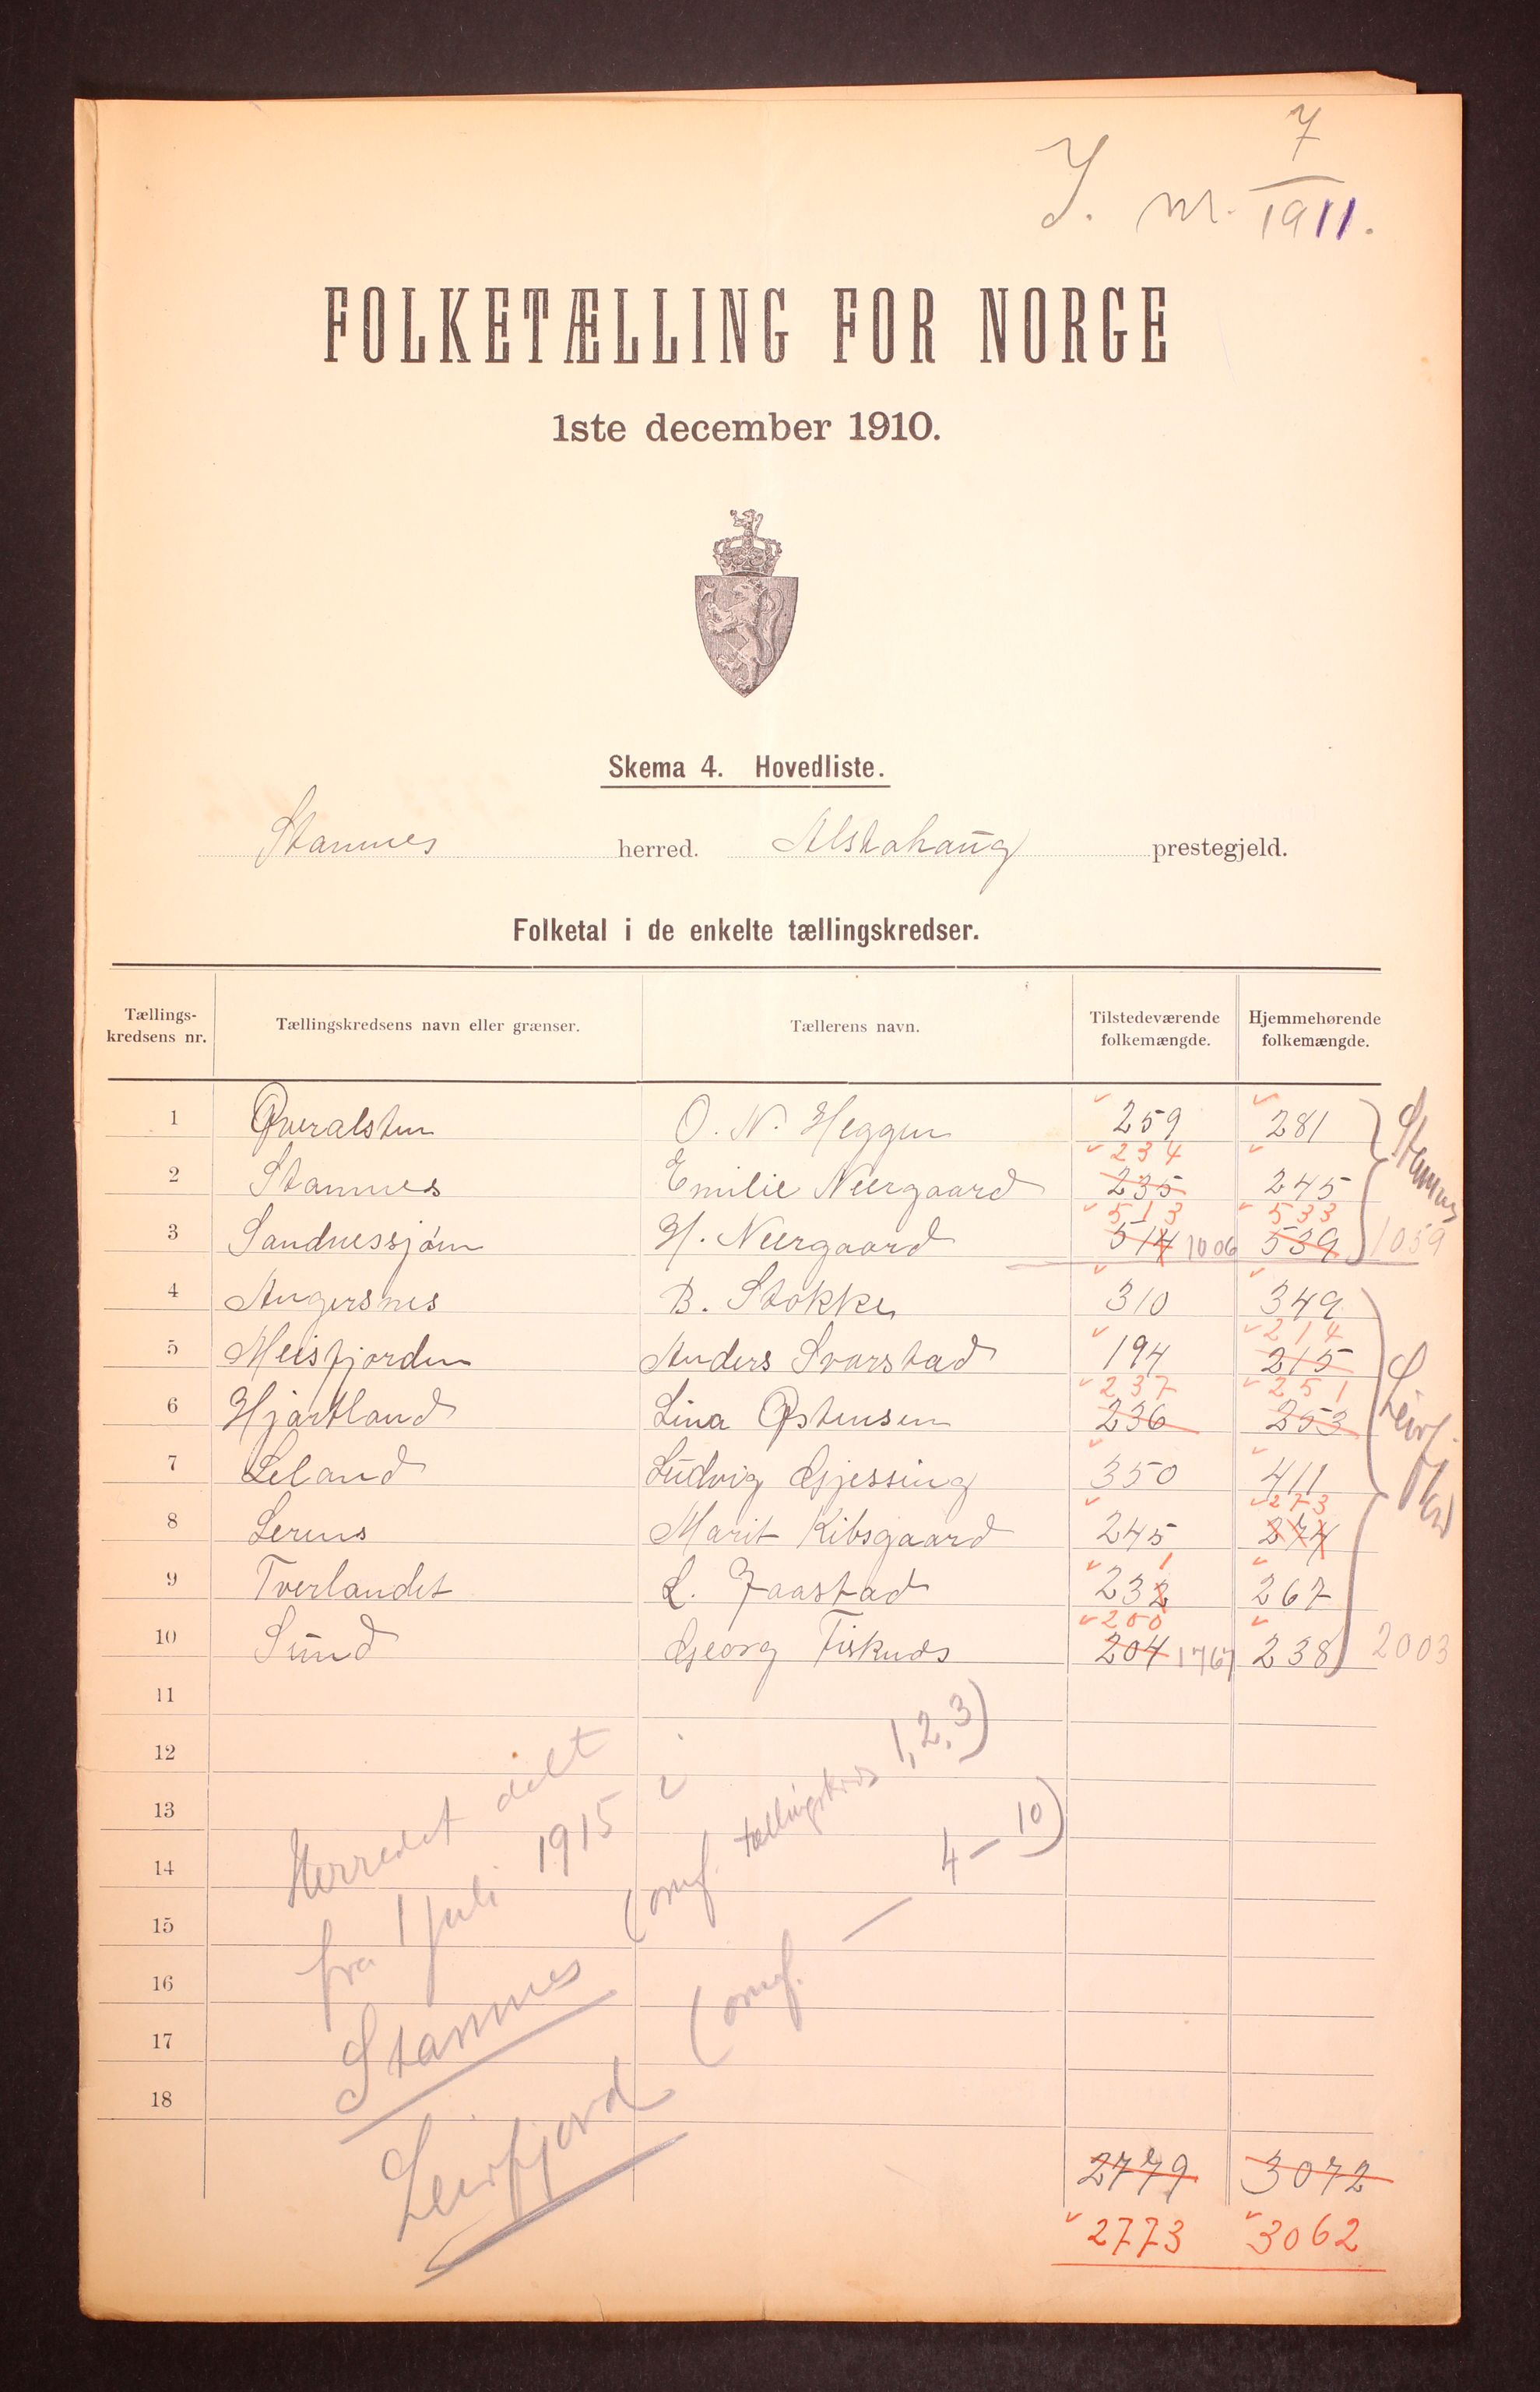 J. nr. 7/1911.
FOLKETÆLLING FOR NORGE
1ste december 1910.
Skema 4. Hovedliste.
Stamnes herred. Alstahaug prestegjeld.
Folketal i de enkelte tællingskredser.
Tællings-kredsens nr. Tællingskredsens navn eller grænser. Tællerens navn. Tilstedeværende folkemængde. Hjemmehørende folkemængde.
1 Øveralsten O. N. Heggen 259 281 Stamnes
234
2 Stamnes Emilie Neergaard 235 245
513 533
3 Sandnessjøen H. Neergaard 514 1006 539 1059
4 Angersnes B. Stokke 310 349
214
5 Meisfjorden Anders Svarstad 194 215
237 251
6 Hjartland Lina Østensen 236 253 Leirfjord
7 Leland Ludvig Gjessing 350 411
273
8 Lernes Marit Kibsgaard 245 274
1
9 Tverlandet L. Faastad 232 267
200
10 Sund Georg Fisknes 204 1767 238 2003
11
12
13
14
15
16
17
18
Herredet delt
fra 1 juli 1915 i
Stamnes (omf. tællingskreds 1, 2, 3)
Leirfjord (omf. — 4 – 10)
2779 3072
2773 3062